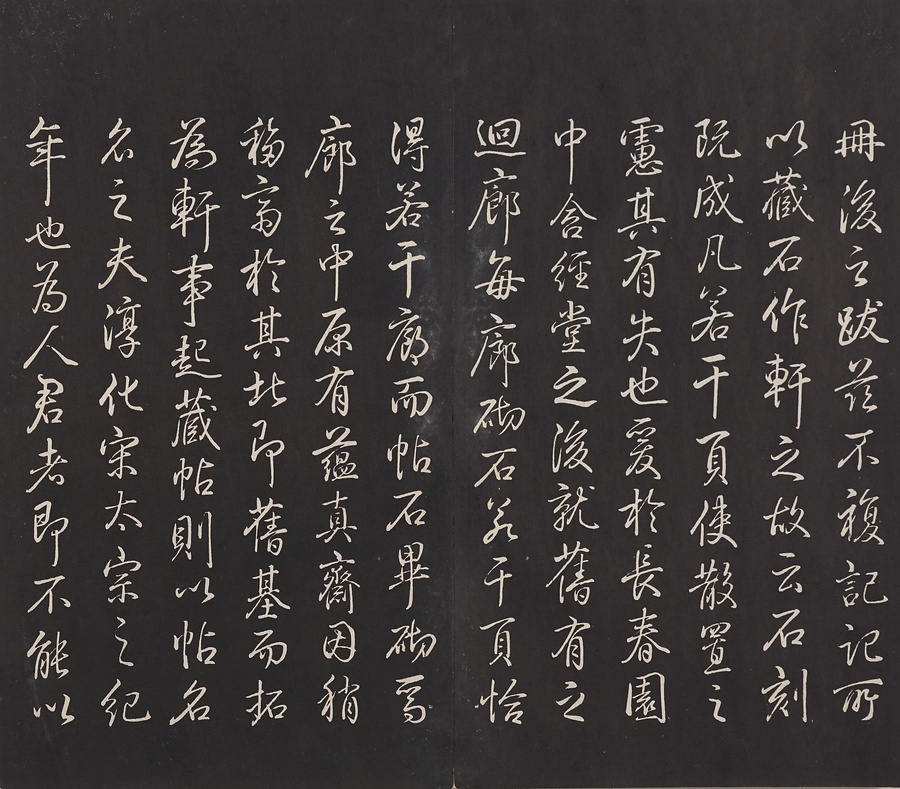 冊後之跋茲不複記記所
以藏石作軒之故云石刻
既成凡若干頁使散置之
慮其有失也爰於長春園
中含經堂之後就舊有之
迴廊每廊砌石若干頁恰
得若干廊而帖石畢砌焉
廊之中原有蘊真齋因稍
移齋於其北即舊基而拓
為軒事起藏帖則以帖名
名之夫淳化宋太宗之紀
年也為人君者即不能以